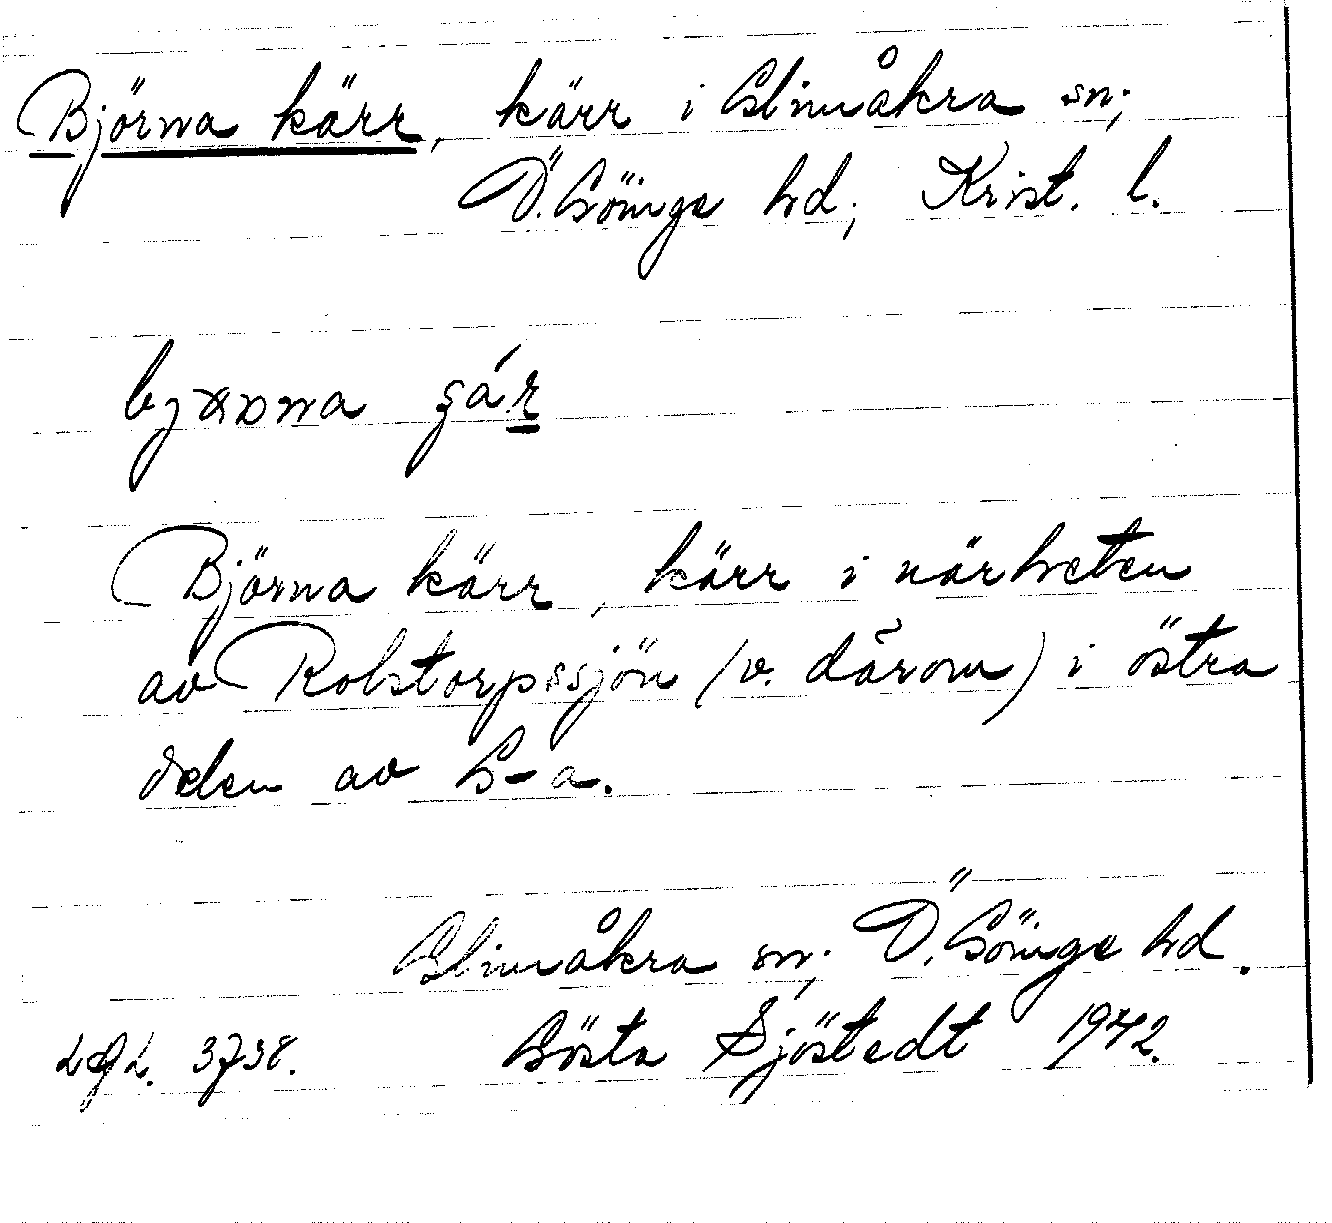 Björna kärr, kärr i Glimåkra sn;
Ö. Göinge hd; Krist. l.
Björna kärr, kärr i närheten
av Rolstorpssjön (v. därom) i östra
delen av G-a.
Glimåkra sn; Ö. Göinge hd.
LAL. 3738. Gösta Sjöstedt 1942.